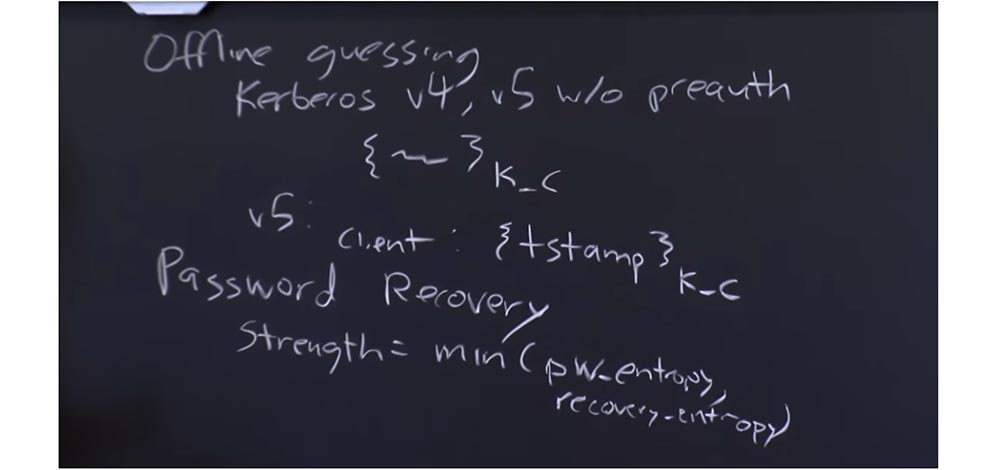 Offline guessing
Kerberos v4, v5 w/o preauth
{~}K_C
v5:
Client: {tstamp}K_C
Password Recovery
Strength = min(pw_entropy,
recovery_entropy)